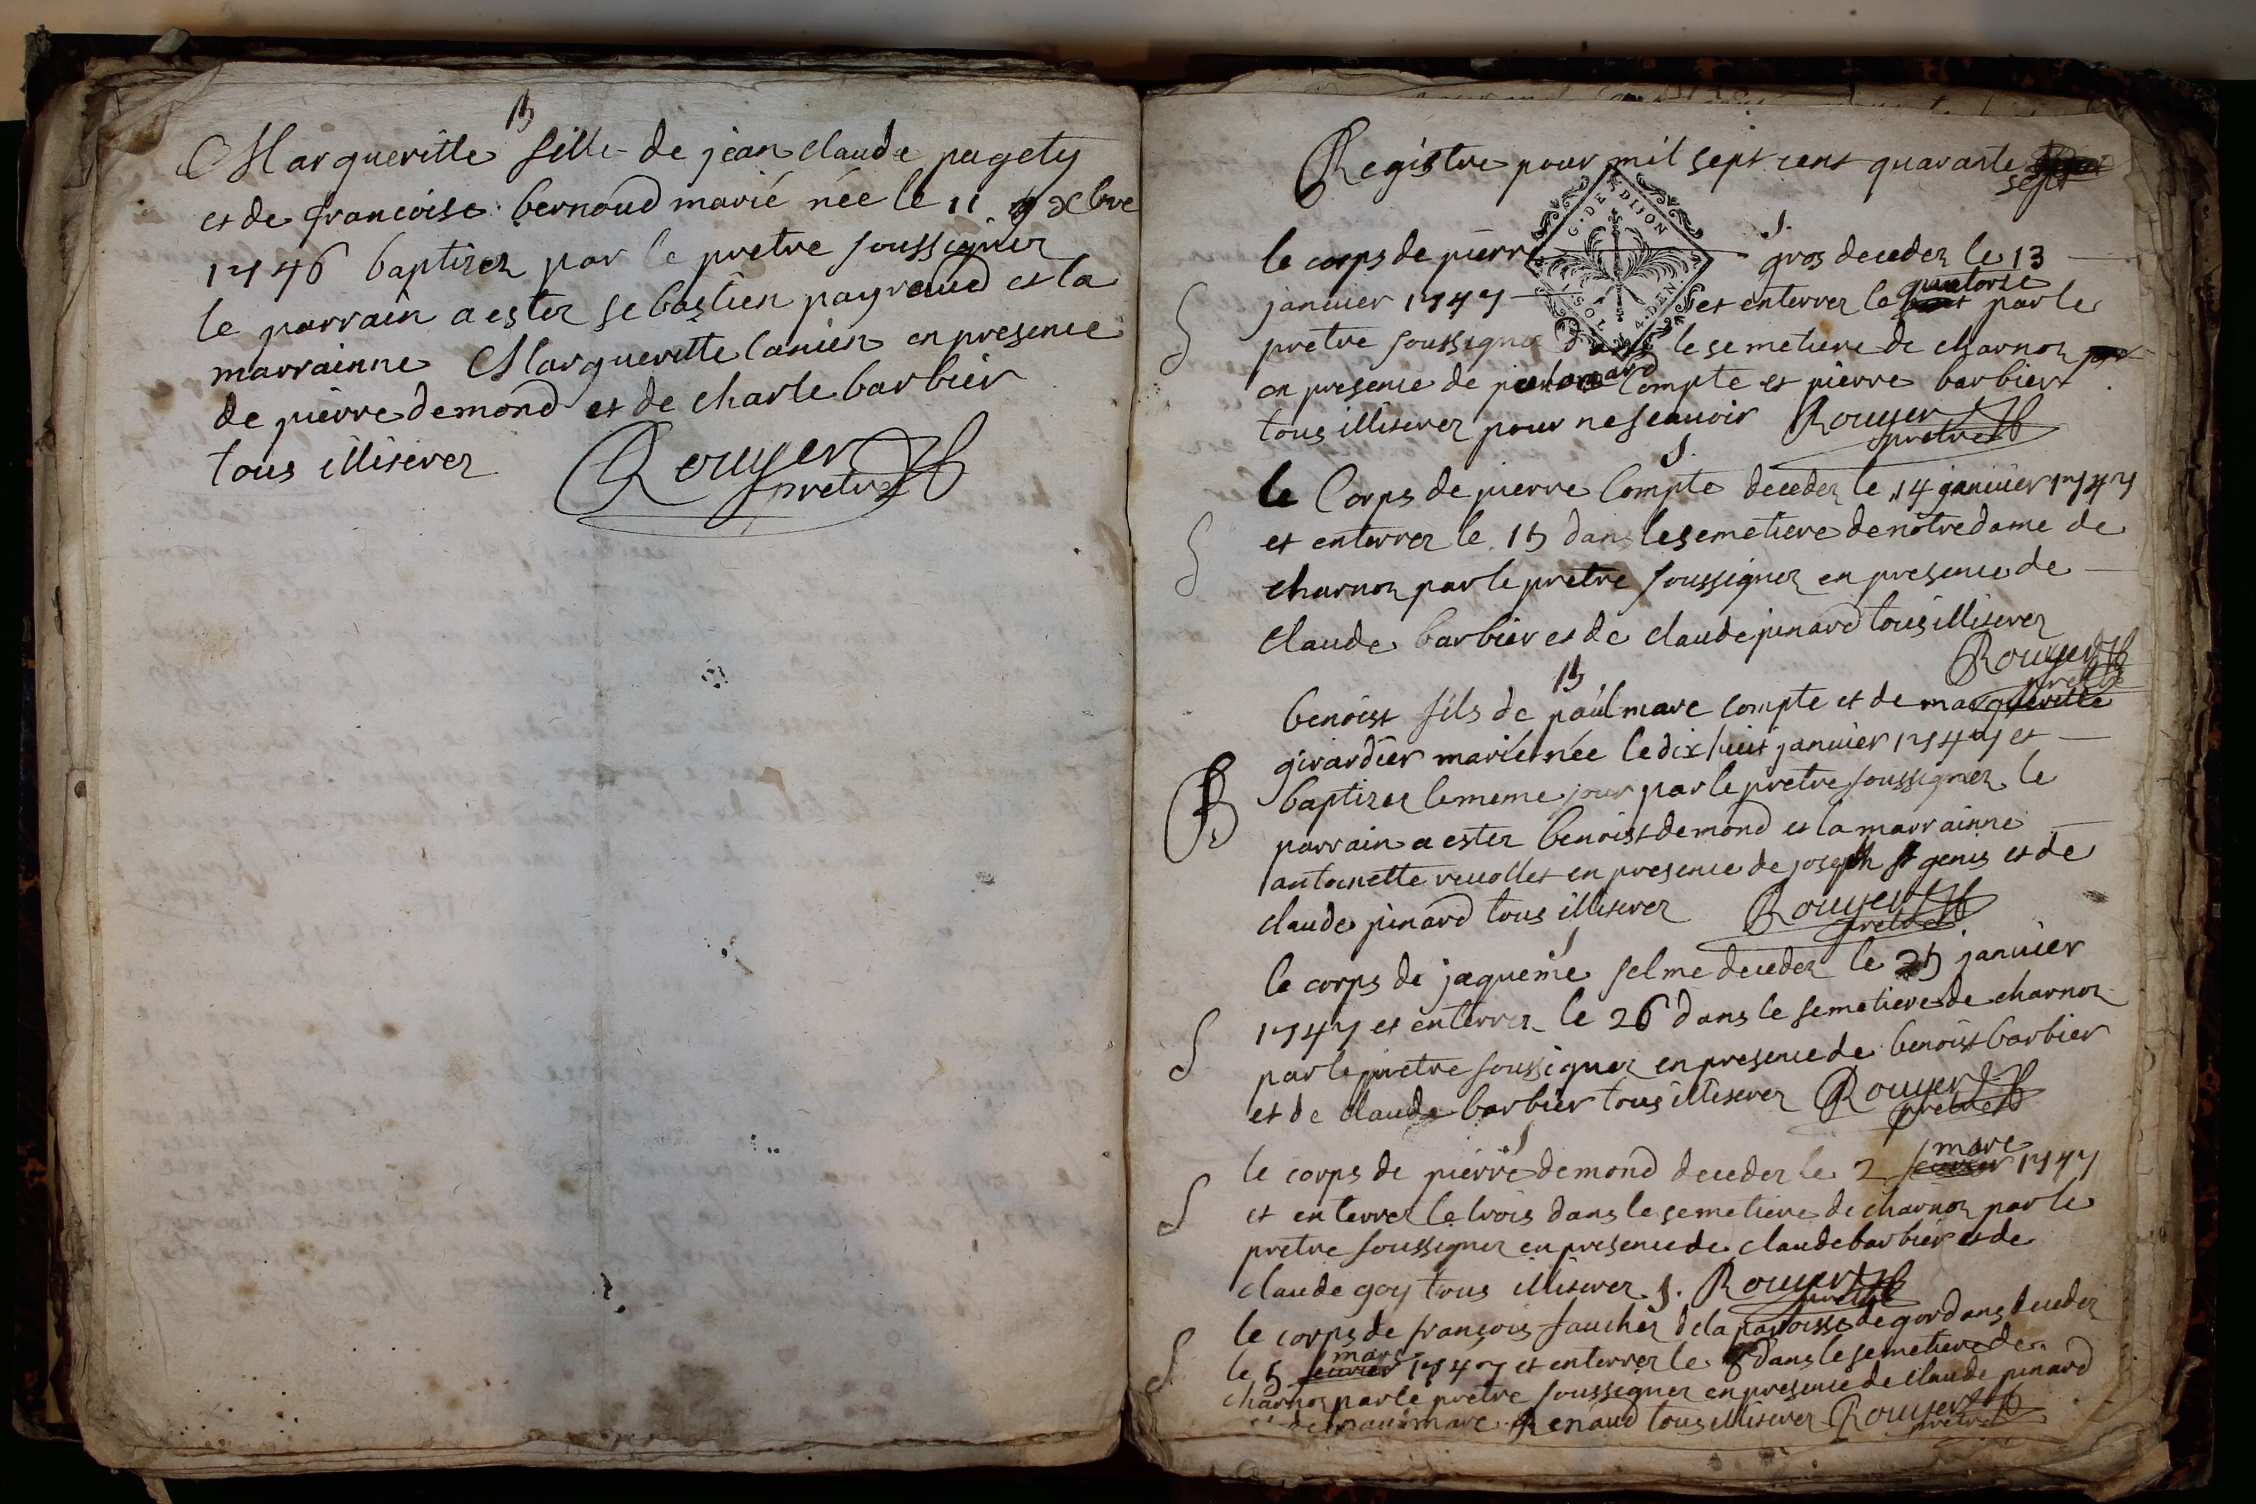 B
Marguerite fille de jean claude pugety
et de francoise bernoud marié née le 11 xbre
1746 baptizez par le pretre soussignez
le parrain a estez sebastien payraud et la
marrainne Marguerette Canien en presence
de pierre demond et de charle barbier
tous illiserez
Rouyer
pretre
Registre pour mil sept cent quarante
sept
S.
le corps de pierre gros decedez le 13
G. DE DIJON
SOLS 4. DEN
quatorse
januier 1747 et enterrez le par le
pretre soussignez dans le semetiere de charnoz
en presence de Compte et pierre barbier
tous illiserez pour ne scauoir Rouyer
pretre
S.
le Corps de pierre Compte decedez le 14 januier 1747
et enterrez le 15 dans le semetiere de notre dame de
charnoz par le pretre soussignez en presence de
Claude barbier et de claude pinard tous illiserez
Rouyer
pretre
B
benoist fils de paul marc compte et de marguerite
girardier marié née le dix huit januier 1747 et
B
baptizez le meme jour par le pretre soussignez le
parrain a estez benoist demond et la marrainne
antoinette reuollet en presence de joseph st genis et de
claude pinard tous illiserez Rouyer
pretre
S
le corps de jaqueme selme decedez le 25 januier
1747 et enterrez le 26 dans le semetiere de charnoz
par le pretre soussignez en presence de benoist barbier
et de claude barbier tous illiserez Rouyer
pretre
S
marc
le corps de pierre demond decedez le 2 feurier 1747
et enterrez le trois dans le semetiere de charnoz par le
pretre soussignez en presence de claude barbier et de
claude goy tous illiserez S. Rouyer
pretre
le corps de françois fauchez de la paroisse de gordans decedez
marc
le 5 feurier 1747 et enterrez le 6 dans le semetiere de
charnoz par le pretre soussignez en presence de claude pinard
de marc Renaud tous illiserez Rouyer
pretre